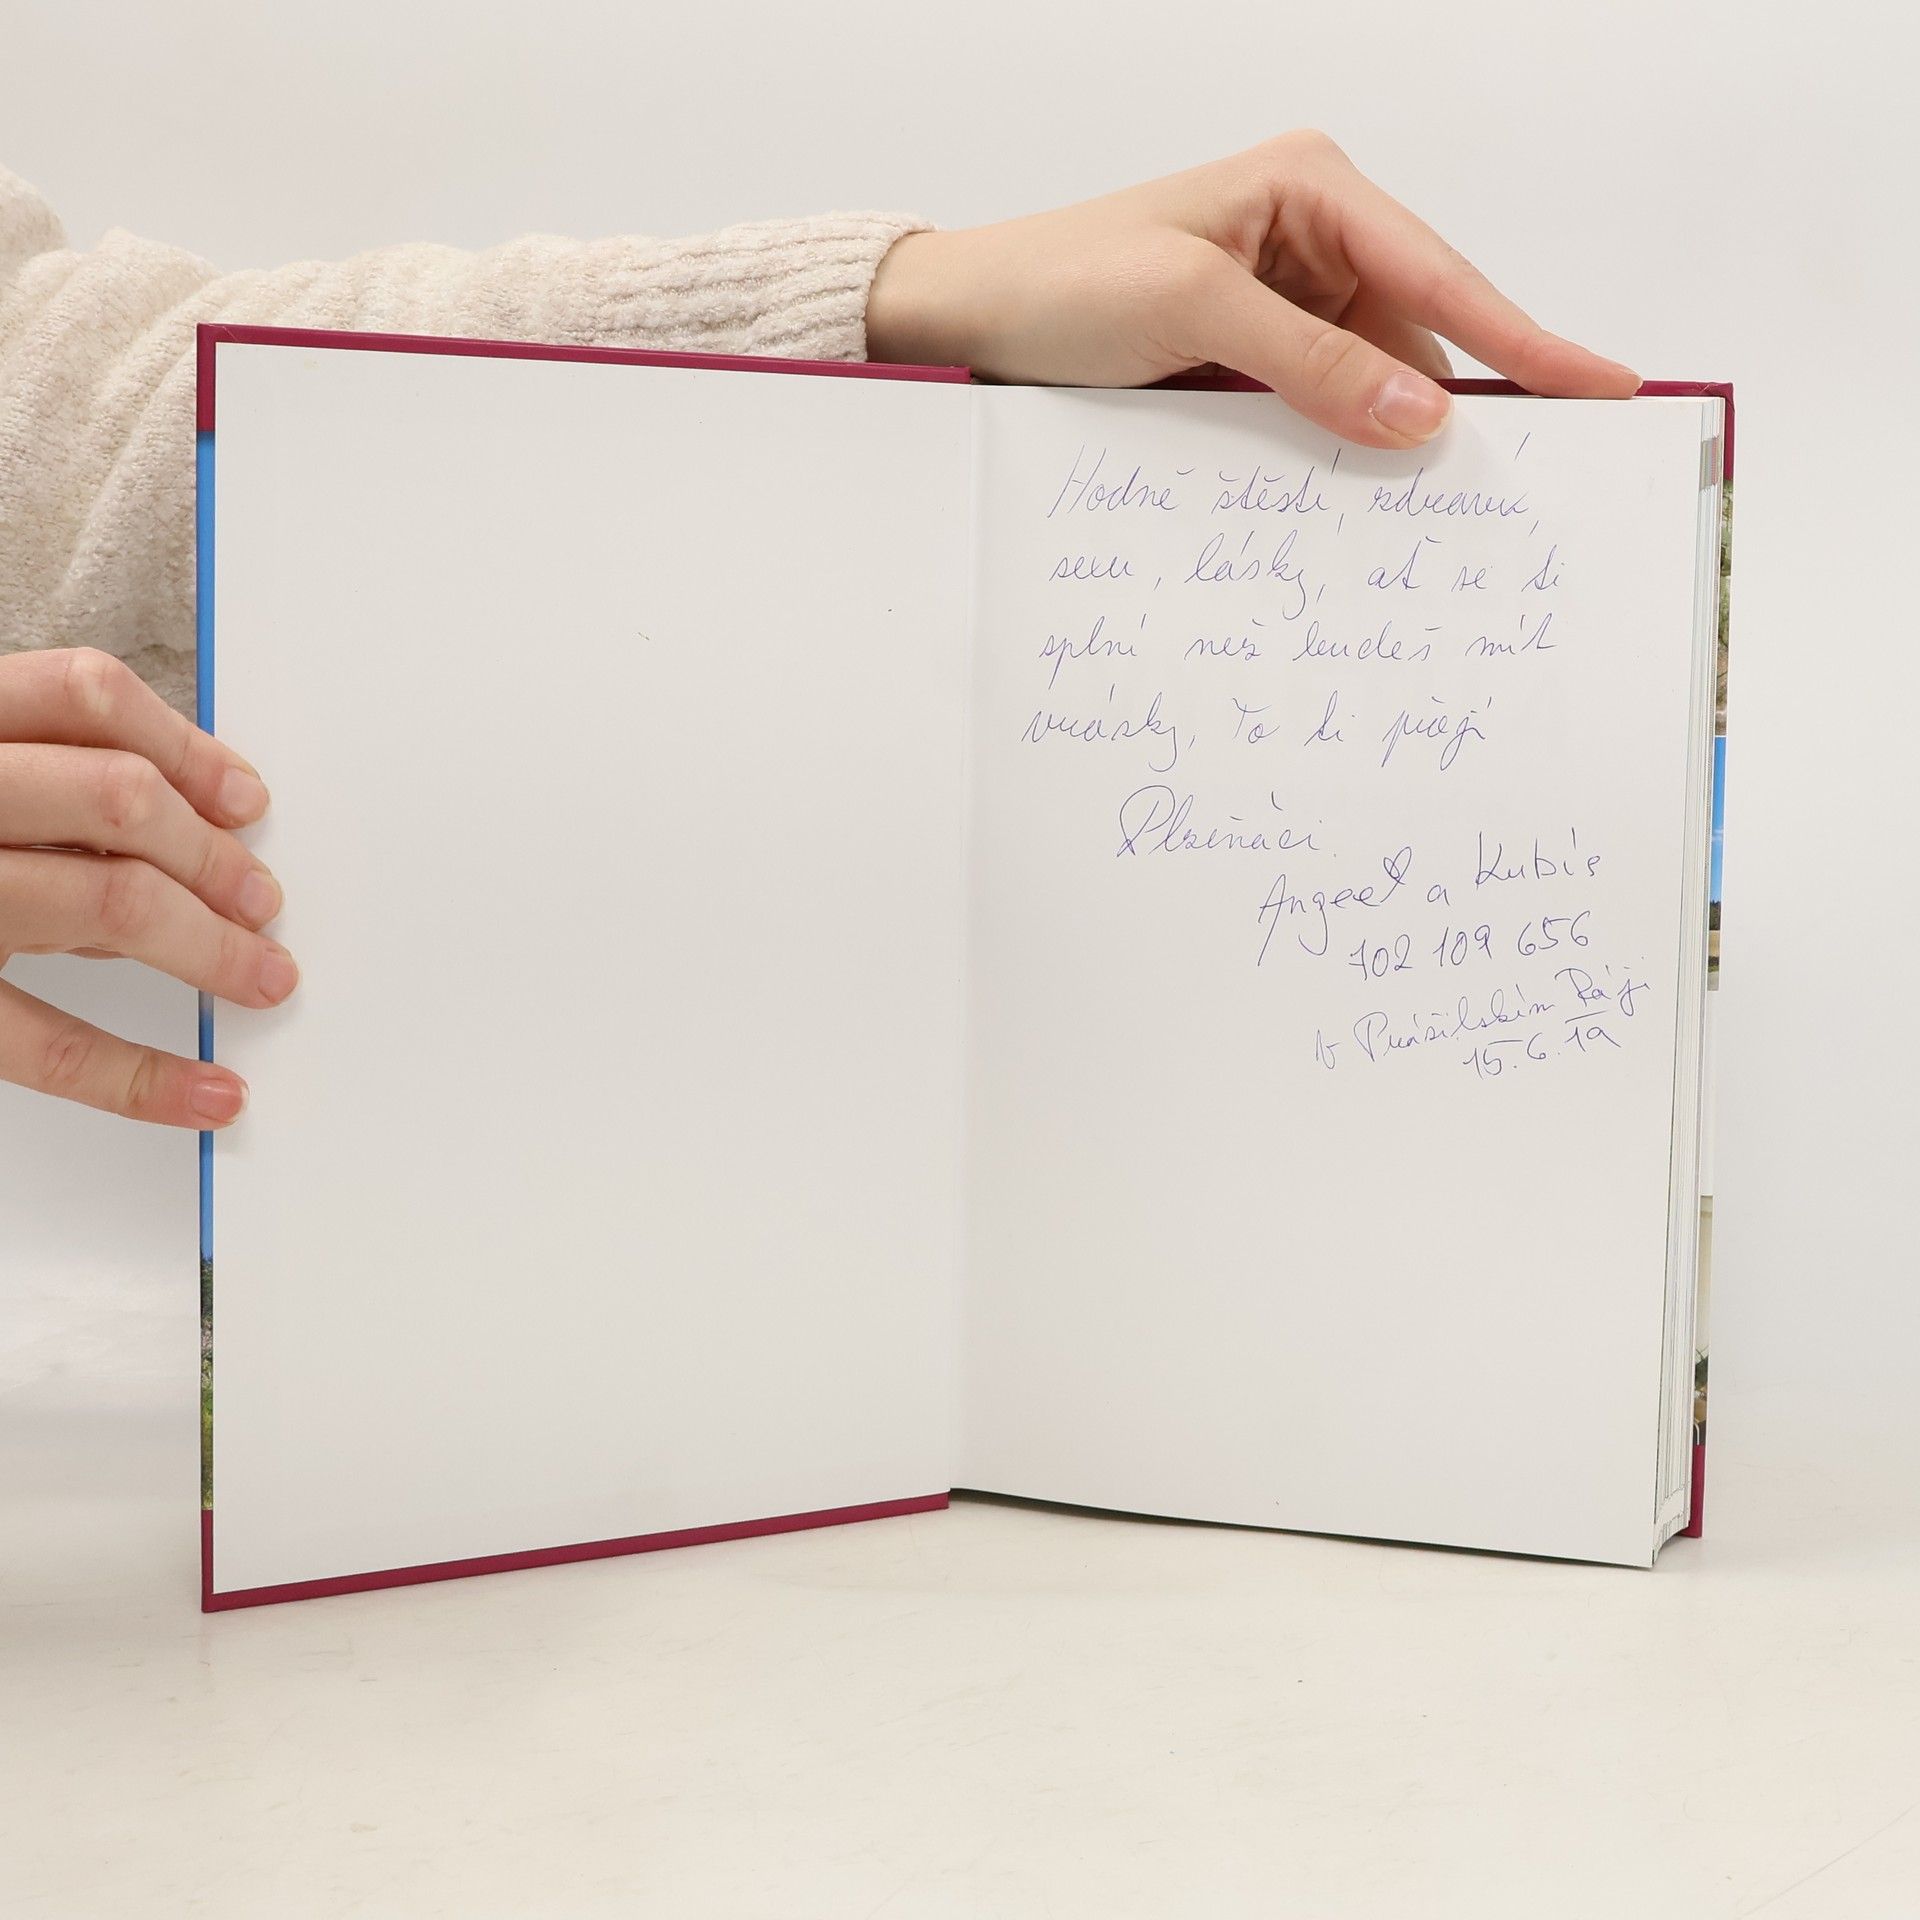 Hodně štěstí, zdraví,
sexu, lásky, ať se ti
splní než budeš mít
vrásky, To ti přejí
Plzeňáci.
Angeel a Kubis
702 109 656
v Prášilském Ráji
15.6.19